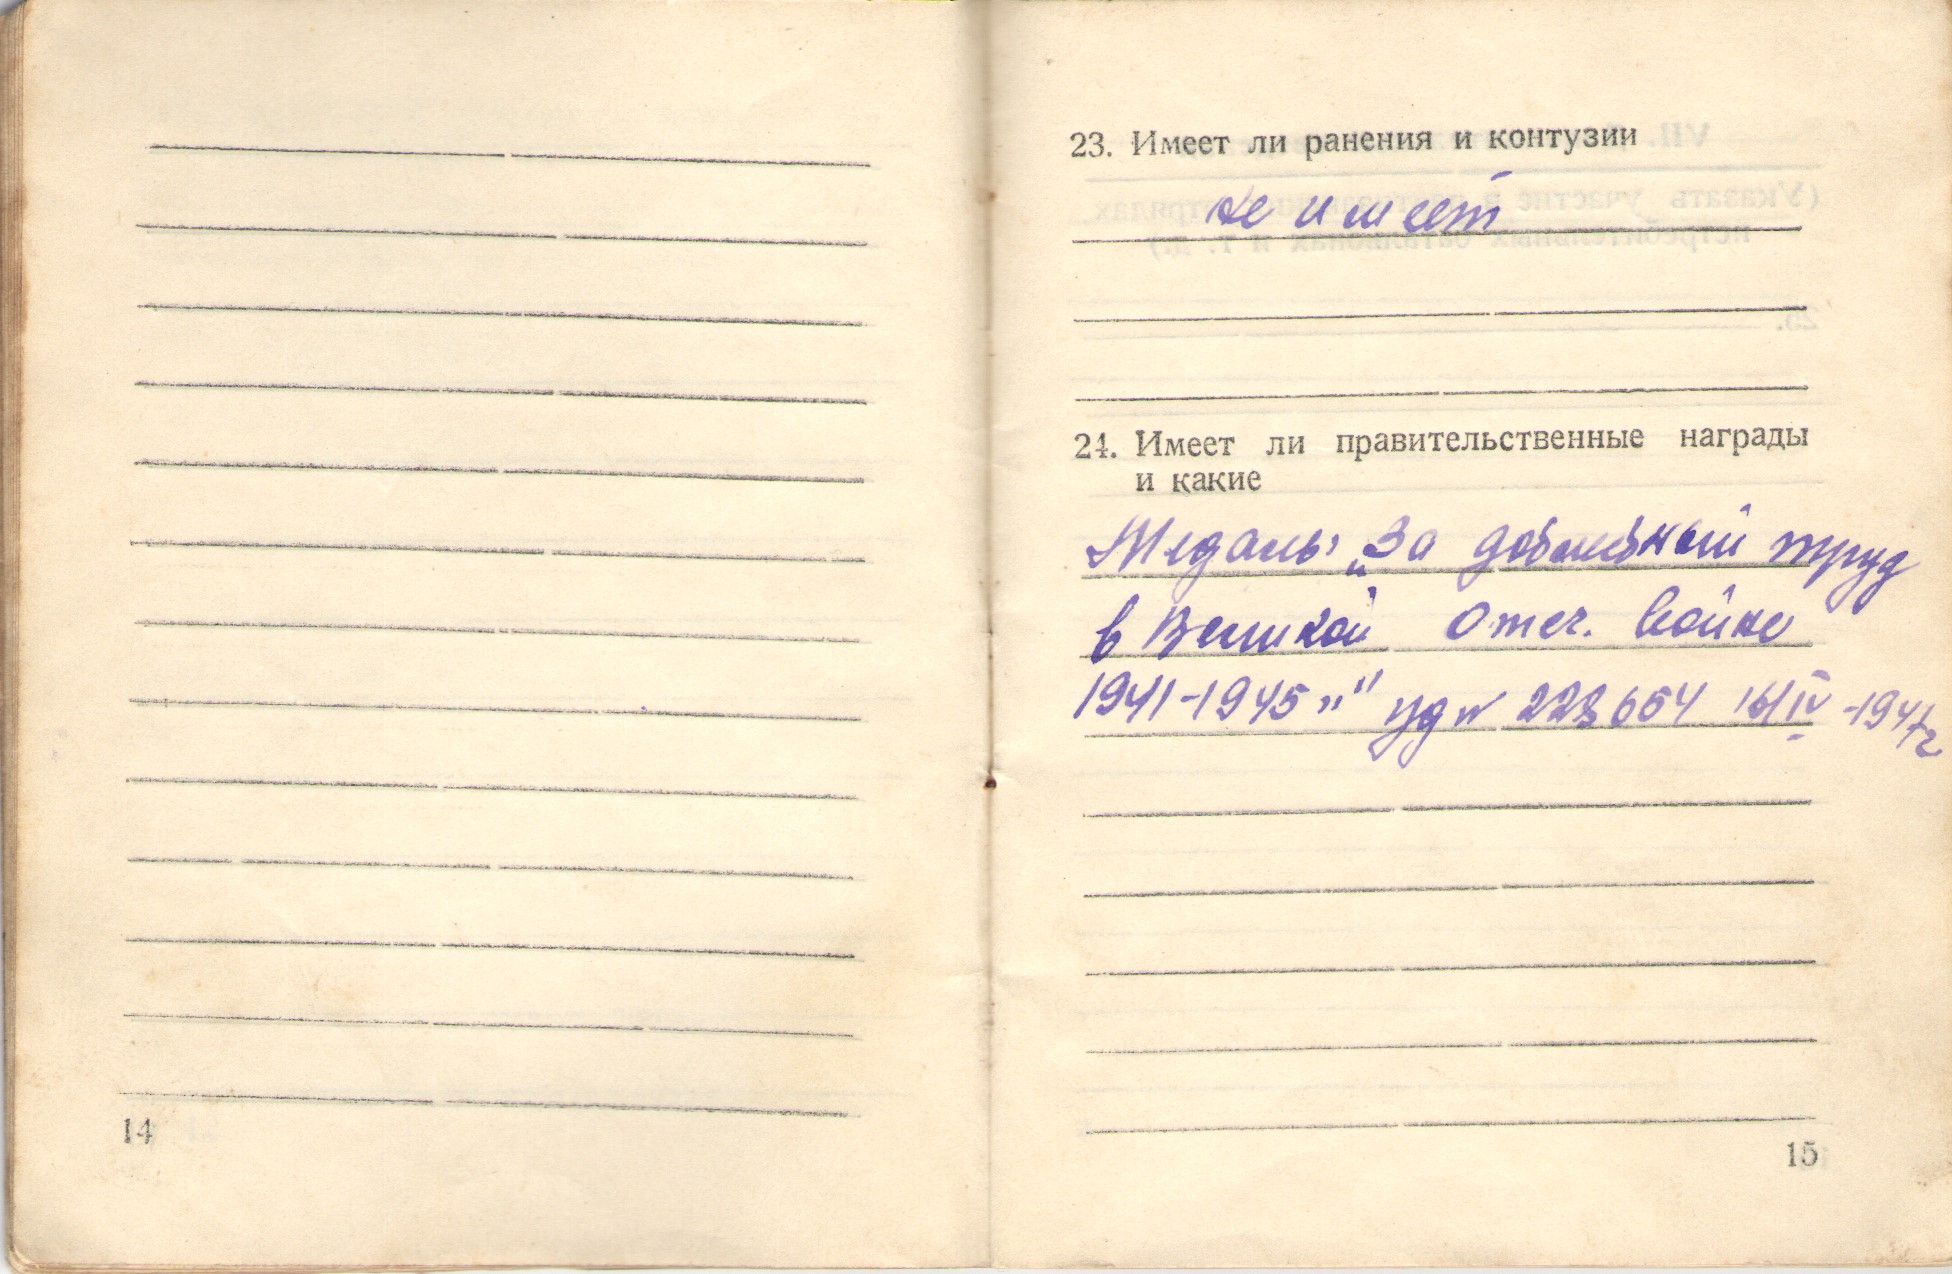 14
23. Имеет ли ранения и контузии
не имеет
24. Имеет ли правительственные награды
и какие
Медаль: „За доблестный труд
в Великой Отеч. войне
1941-1945 г." уд № 228654 16/IV -1947г
15